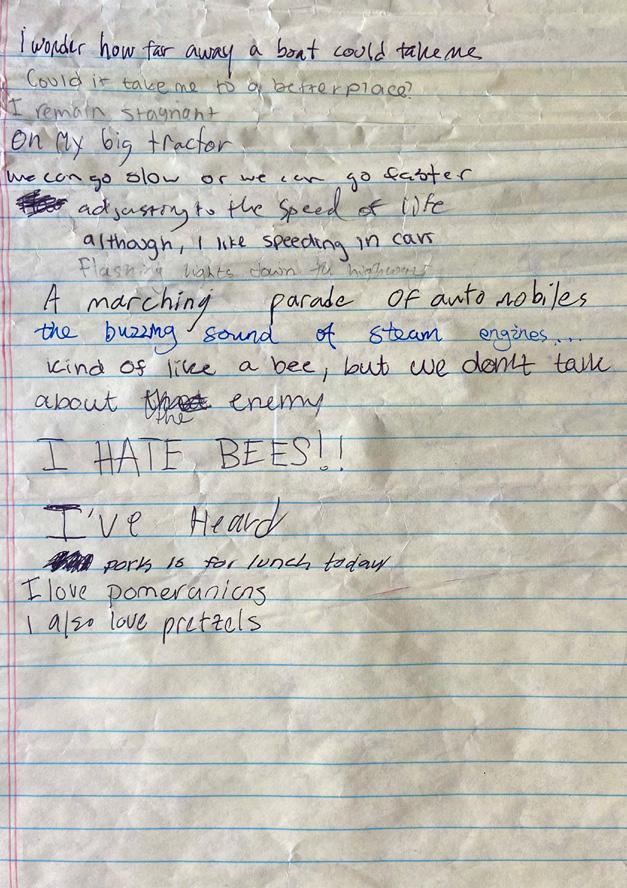 I wonder how far away a boat could take me
Could it take me to a better place?
I remain stagnant
On My big tractor
we can go slow or we can go faster
adjusting to the speed of life
although, I like speeding in cars
Flashing lights down the highway
A marching parade of automobiles
the buzzing sound of steam engines...
kind of like a bee, but we don't talk
about the enemy
I HATE BEES!!
I've Heard
pork is for lunch today
I love pomeranians
I also love pretzels